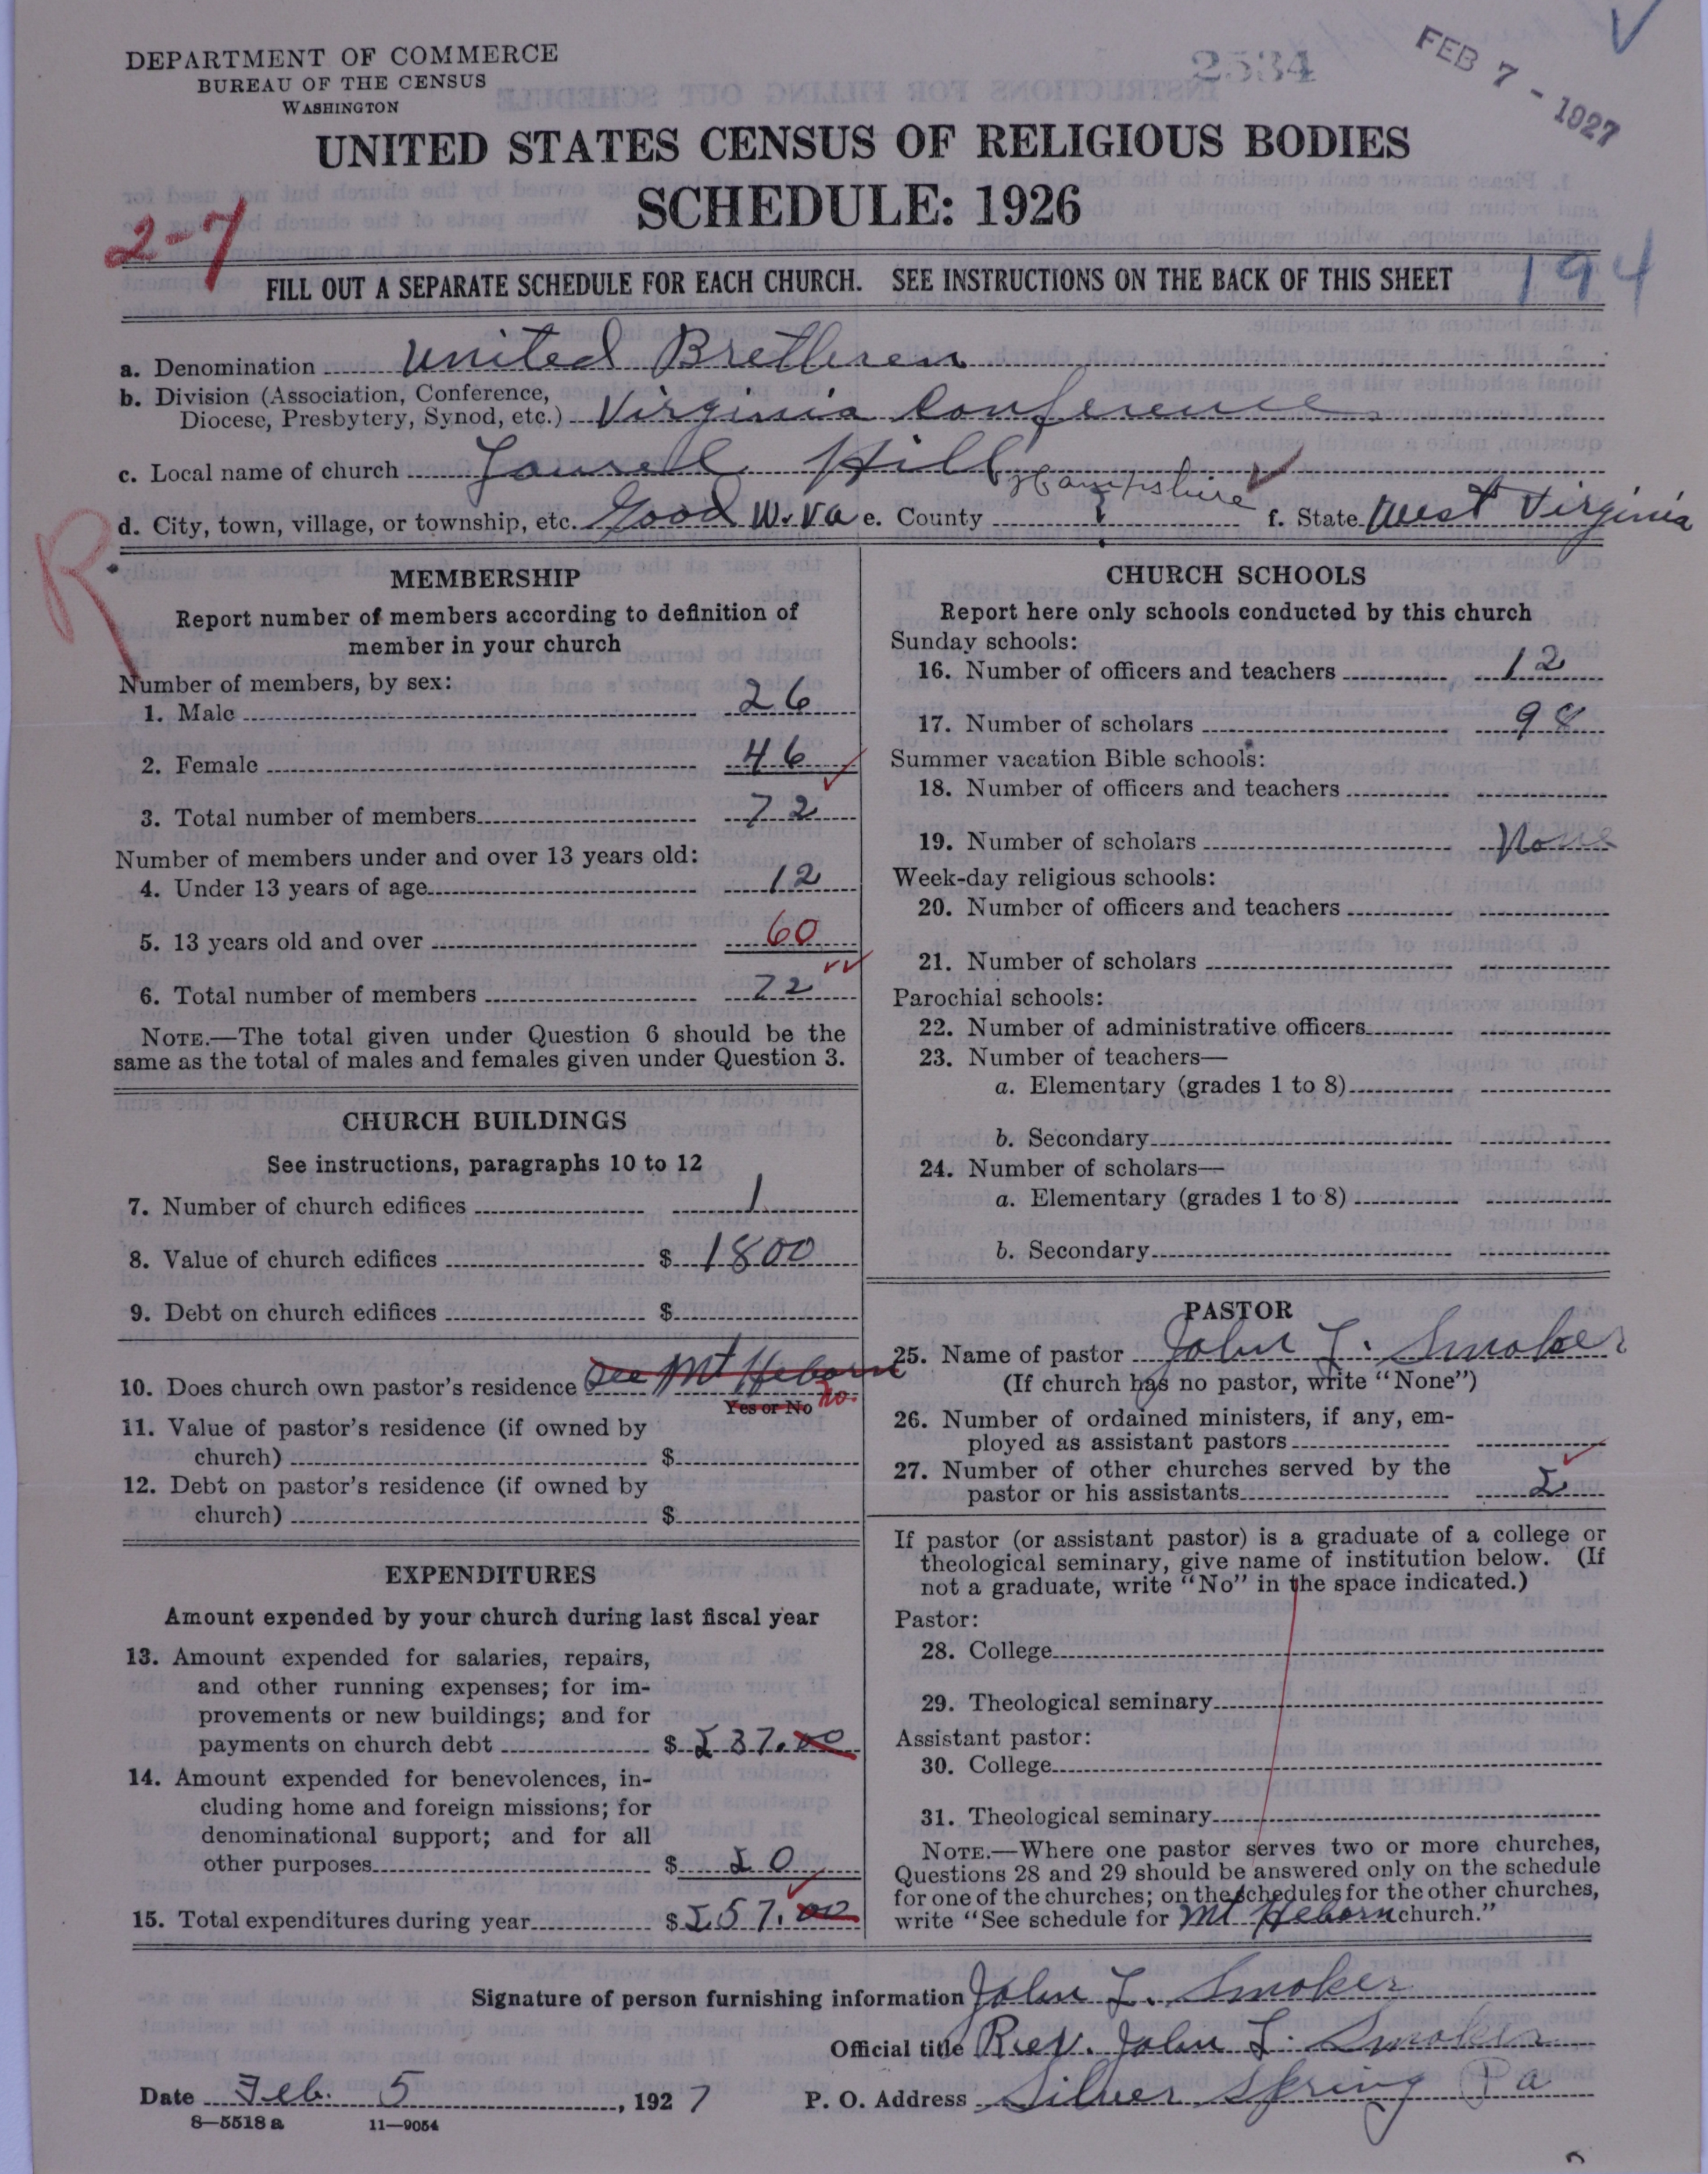 DEPARTMENT OF COMMERCE
BUREAU OF THE CENSUS
WASHINGTON
2534
FEB 7 - 1927
UNITED STATES CENSUS OF RELIGIOUS BODIES
SCHEDULE: 1926
2-7
FILL OUT A SEPARATE SCHEDULE FOR EACH CHURCH. SEE INSTRUCTIONS ON THE BACK OF THIS SHEET
194
a. Denomination United Brethren
b. Division (Association, Conference,
Diocese, Presbytery, Synod, etc.) Virginia Conference
c. Local name of church Laurel Hill
d. City, town, village, or township, etc. Good W. Va e. County Hampshire ? f. State West Virginia
R
MEMBERSHIP
Report number of members according to definition of
member in your church
Number of members, by sex:
1. Male 26
2. Female 46
3. Total number of members 72
Number of members under and over 13 years old:
4. Under 13 years of age 12
5. 13 years old and over 60
6. Total number of members 72
NOTE.—The total given under Question 6 should be the
same as the total of males and females given under Question 3.
CHURCH BUILDINGS
See instructions, paragraphs 10 to 12
7. Number of church edifices 1
8. Value of church edifices $ 1800
9. Debt on church edifices $
10. Does church own pastor's residence See Mt Heborn
Yes or No no.
11. Value of pastor's residence (if owned by
church) $
12. Debt on pastor's residence (if owned by
church) $
EXPENDITURES
Amount expended by your church during last fiscal year
13. Amount expended for salaries, repairs,
and other running expenses; for im-
provements or new buildings; and for
payments on church debt $ 237.00
14. Amount expended for benevolences, in-
cluding home and foreign missions; for
denominational support; and for all
other purposes $ 20
15. Total expenditures during year $ 257.00
CHURCH SCHOOLS
Report here only schools conducted by this church
Sunday schools:
16. Number of officers and teachers 12
17. Number of scholars 98
Summer vacation Bible schools:
18. Number of officers and teachers
19. Number of scholars None
Week-day religious schools:
20. Number of officers and teachers
21. Number of scholars
Parochial schools:
22. Number of administrative officers
23. Number of teachers—
a. Elementary (grades 1 to 8)
b. Secondary
24. Number of scholars—
a. Elementary (grades 1 to 8)
b. Secondary
PASTOR
25. Name of pastor John L. Smoker
(If church has no pastor, write "None")
26. Number of ordained ministers, if any, em-
ployed as assistant pastors
27. Number of other churches served by the
pastor or his assistants 2
If pastor (or assistant pastor) is a graduate of a college or
theological seminary, give name of institution below. (If
not a graduate, write "No" in the space indicated.)
Pastor:
28. College
29. Theological seminary
Assistant pastor:
30. College
31. Theological seminary
NOTE.—Where one pastor serves two or more churches,
Questions 28 and 29 should be answered only on the schedule
for one of the churches; on the schedules for the other churches,
write "See schedule for Mt Heborn church."
Signature of person furnishing information John L. Smoker
Official title Rev. John L. Smoker
Date Feb. 5, 1927 P. O. Address Silver Spring Pa
8—5518 a 11—9054